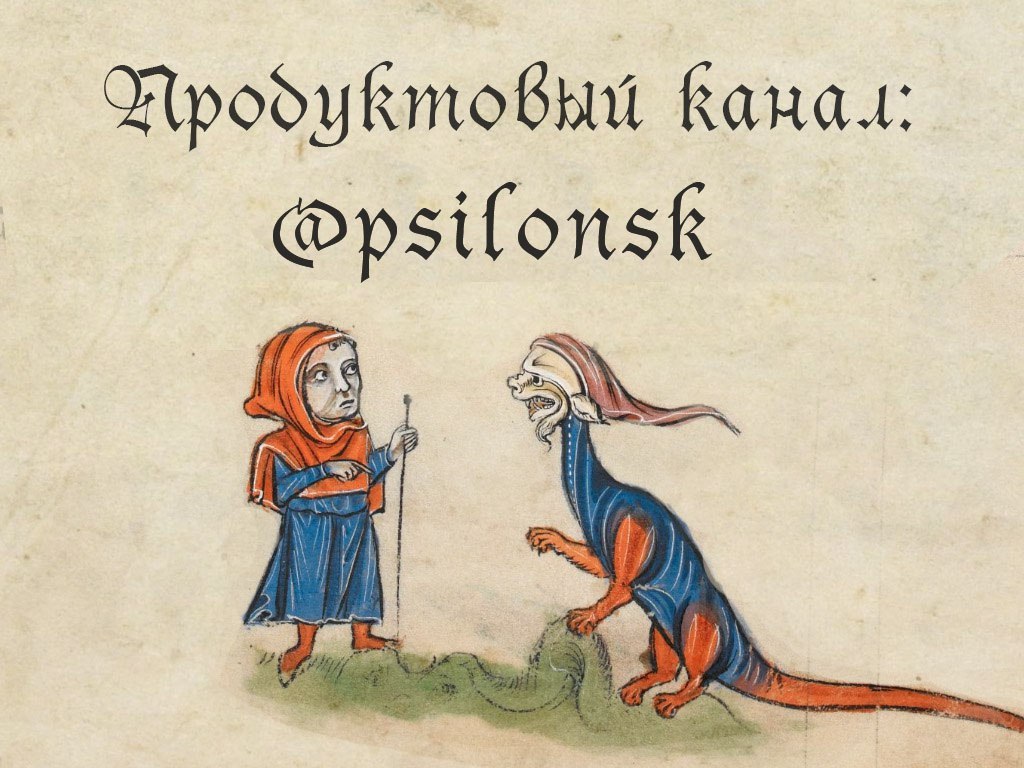 Продуктовый канал:
@psilonsk